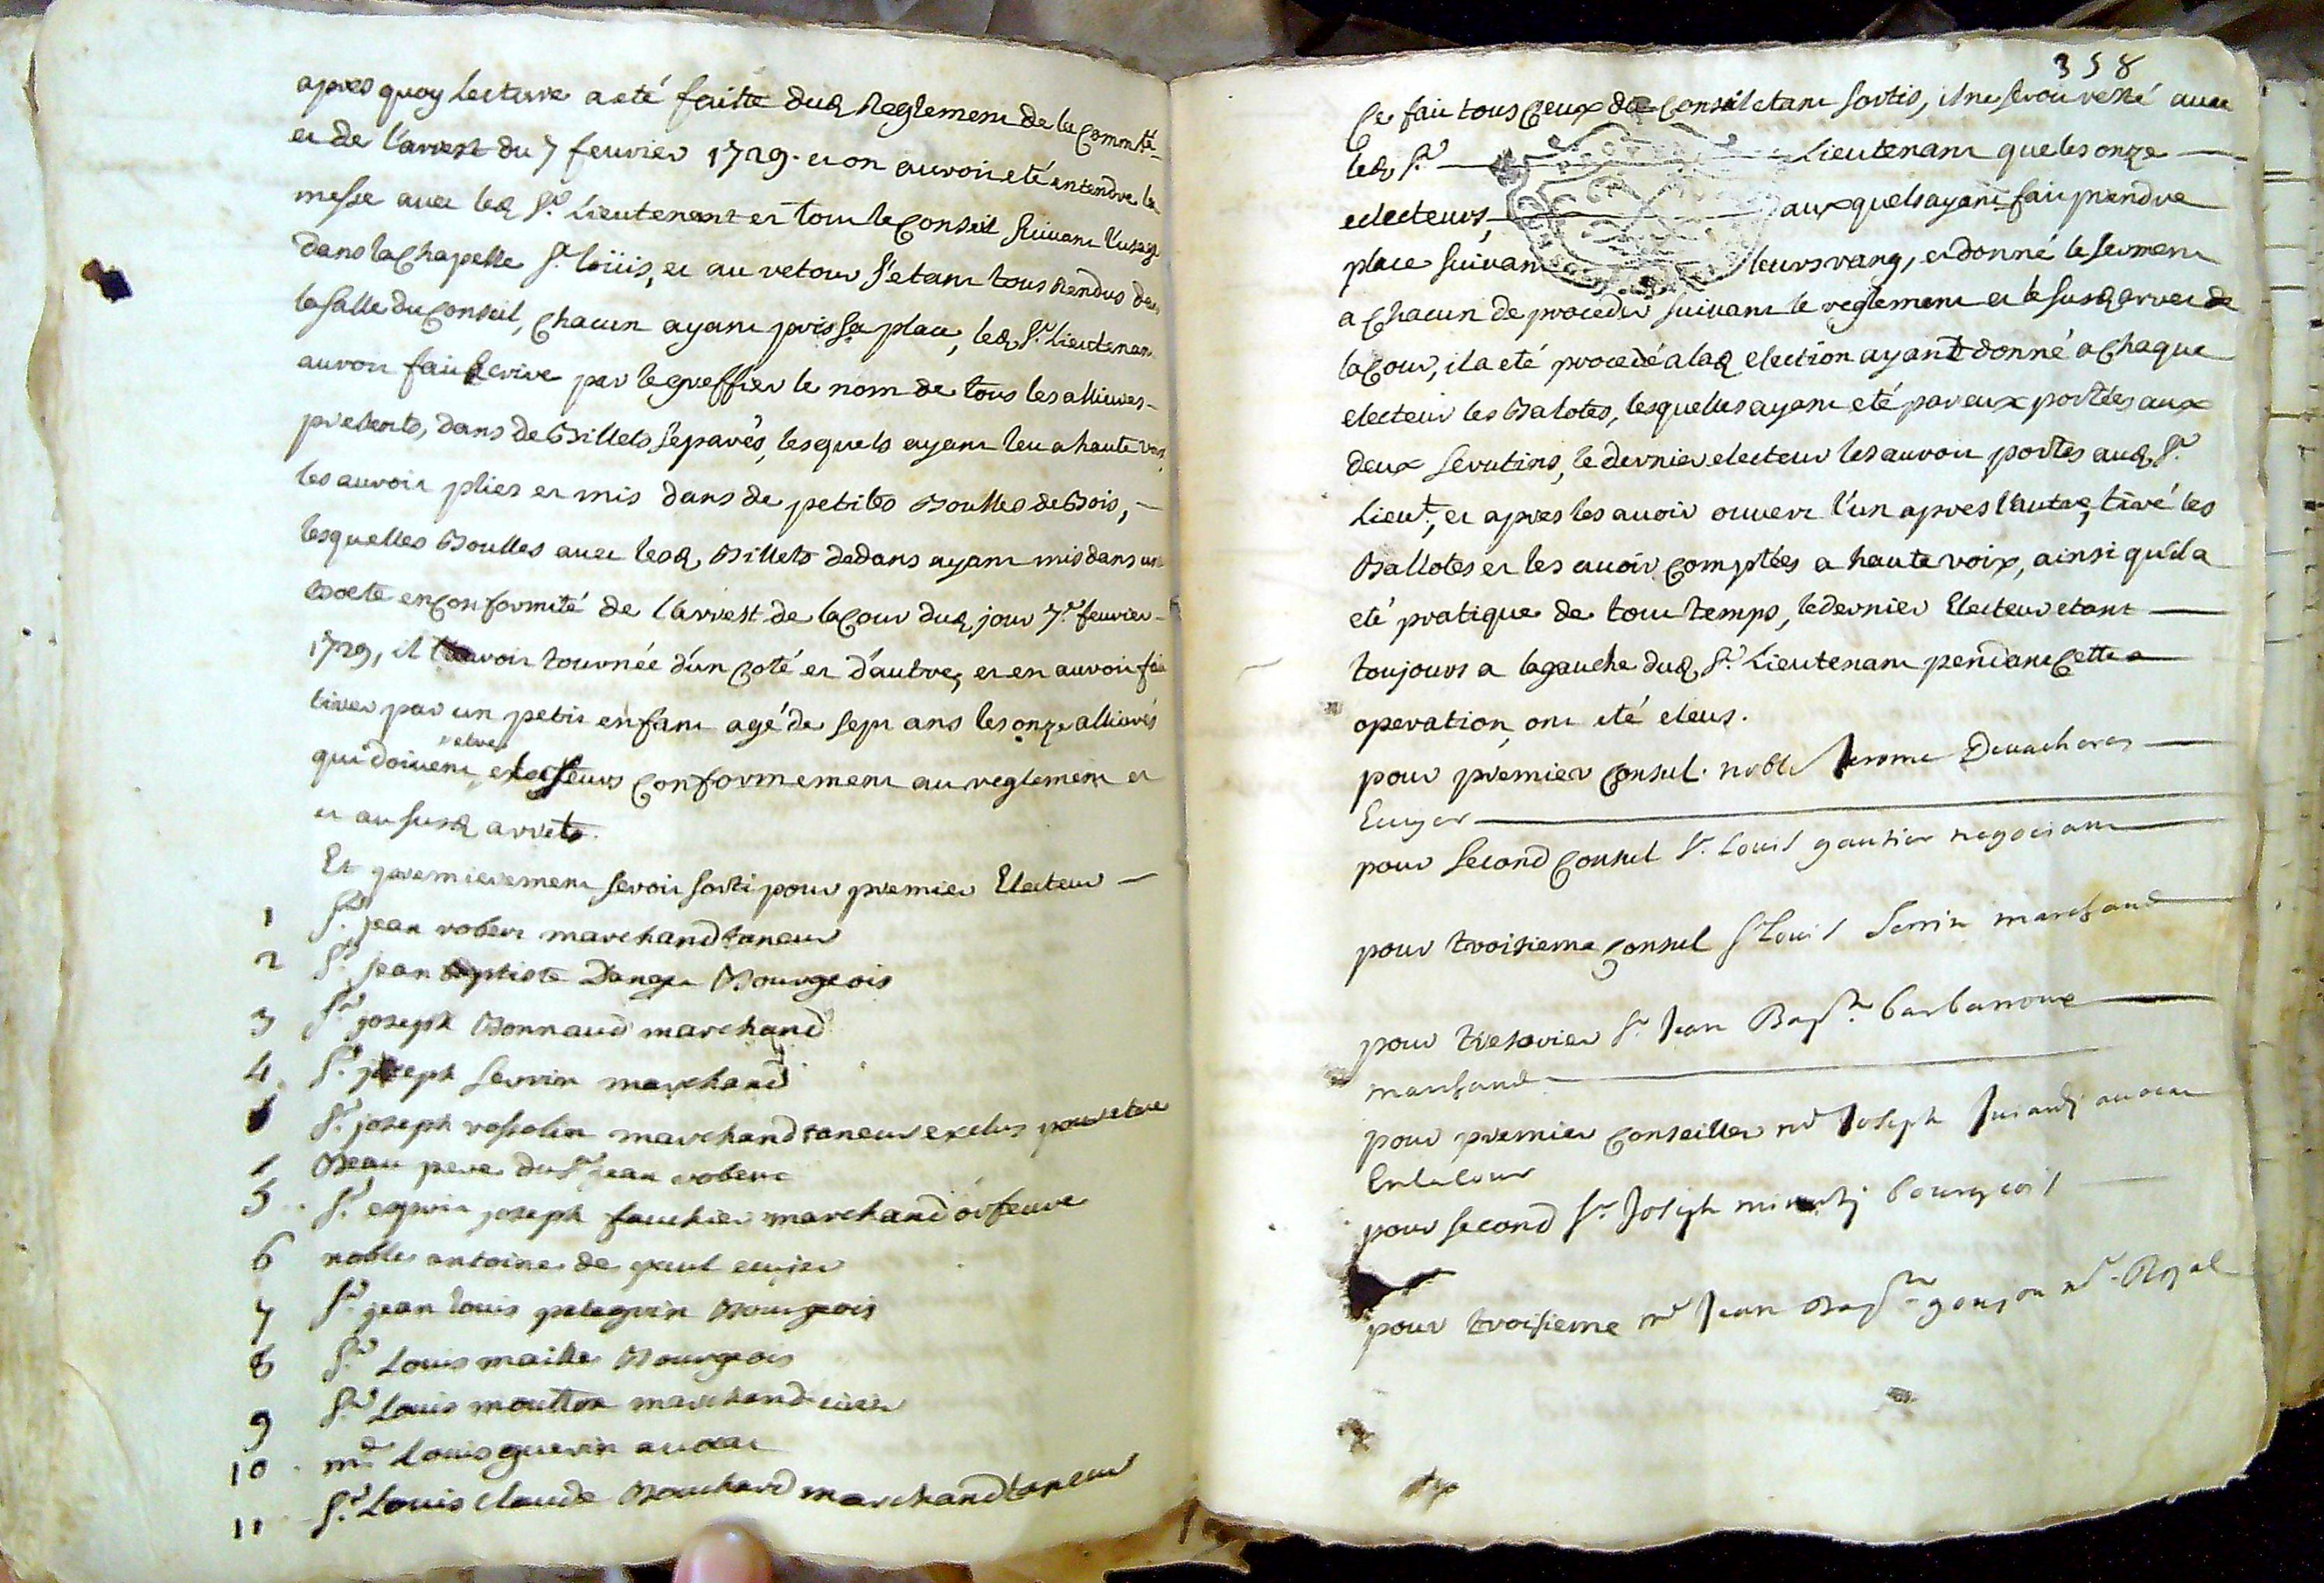 apres quoy lecture a eté faitte dud Reglement de la Commté
et de l'arrest du 7 feurier 1729. et on auroit eté entendre la
messe auec led Sr. Lieutenant et tout le Conseil suiuant l'usage
dans la Chapelle St. loüis, et au retour s'etant tous Rendus dans
la salle du Conseil, Chacun ayant pris sa place, led Sr. Lieutenant
auroit fait Ecrire par le greffier le nom de tous les alliures
presents, dans de Billets separés, lesquels ayant leu a haute voix,
les auroit pliez et mis dans de petites Boulles de Bois,
lesquelles Boulles auec lesd Billets dedans ayant mis dans une
Boete en Conformité de l'arrest de la Cour dud jour 7e feurier
1729, il l'auroit tournée d'un Coté et d'autre, et en auroit fait
tirer par un petit enfant agé de sept ans les onze alliurés
qui doiuent etre electeurs Conformement au reglement et
et au susd arrets.
Et premierement seroit sorti pour premier Electeur
1 Sr. jean robert marchand taneur
2 Sr. jean baptiste Bourgeois
3 Sr. joseph Bonnaud marchand
4. Sr. joseph serrin marchand
Sr. joseph rossolin marchand taneur exclus pour etre
Beau pere du Sr. jean robert
5. Sr. esprit joseph fauchier marchand orfeure
6 noble antoine de paul ecuier
7 Sr. jean louis pelegrin Bourgeois
8 Sr. Louis maille Bourgeois
9 Sr. Louis moutton marchand cirier
10. me Louis guerin auocat
11 Sr. Louis claude Bouchard marchand taneur
358
Ce fait tous Ceux du Conseil etant sortis, il ne seroit resté auec
led Sr. Lieutenant que les onze
electeurs, auxquels ayant fait prendre
place suiuant leurs rang, et donné le serment
a Chacun de proceder suiuant le reglement et le susd arret de
la Cour, il a eté procedé a lad election ayant donné a Chaque
electeur les Balotes, lesquelles ayant eté par eux portées aux
deux scrutins, le dernier electeur les auroit portés aud Sr.
Lieut, et apres les auoir ouuert l'un apres l'autre, tiré les
Ballotes et les auoir Comptées a haute voix, ainsi qu'il a
eté pratique de tout temps, le dernier Electeur etant
toujours a la gauche dud Sr. Lieutenant pendant Cette
operation, ont eté eleus.
pour premier Consul. noble Jerome Deuacheres
Ecuyer
pour second Consul Sr. Louis gautier negociant
pour troisieme Consul Sr Louis Serrin marchand
pour tresorier Sr. Jean Bapte. barbaroux
marchand
pour premier Conseiller me Joseph auocat
En la Cour
pour second Sr. Joseph bourgeois
pour troisieme me Jean Bapte. goujon Royal